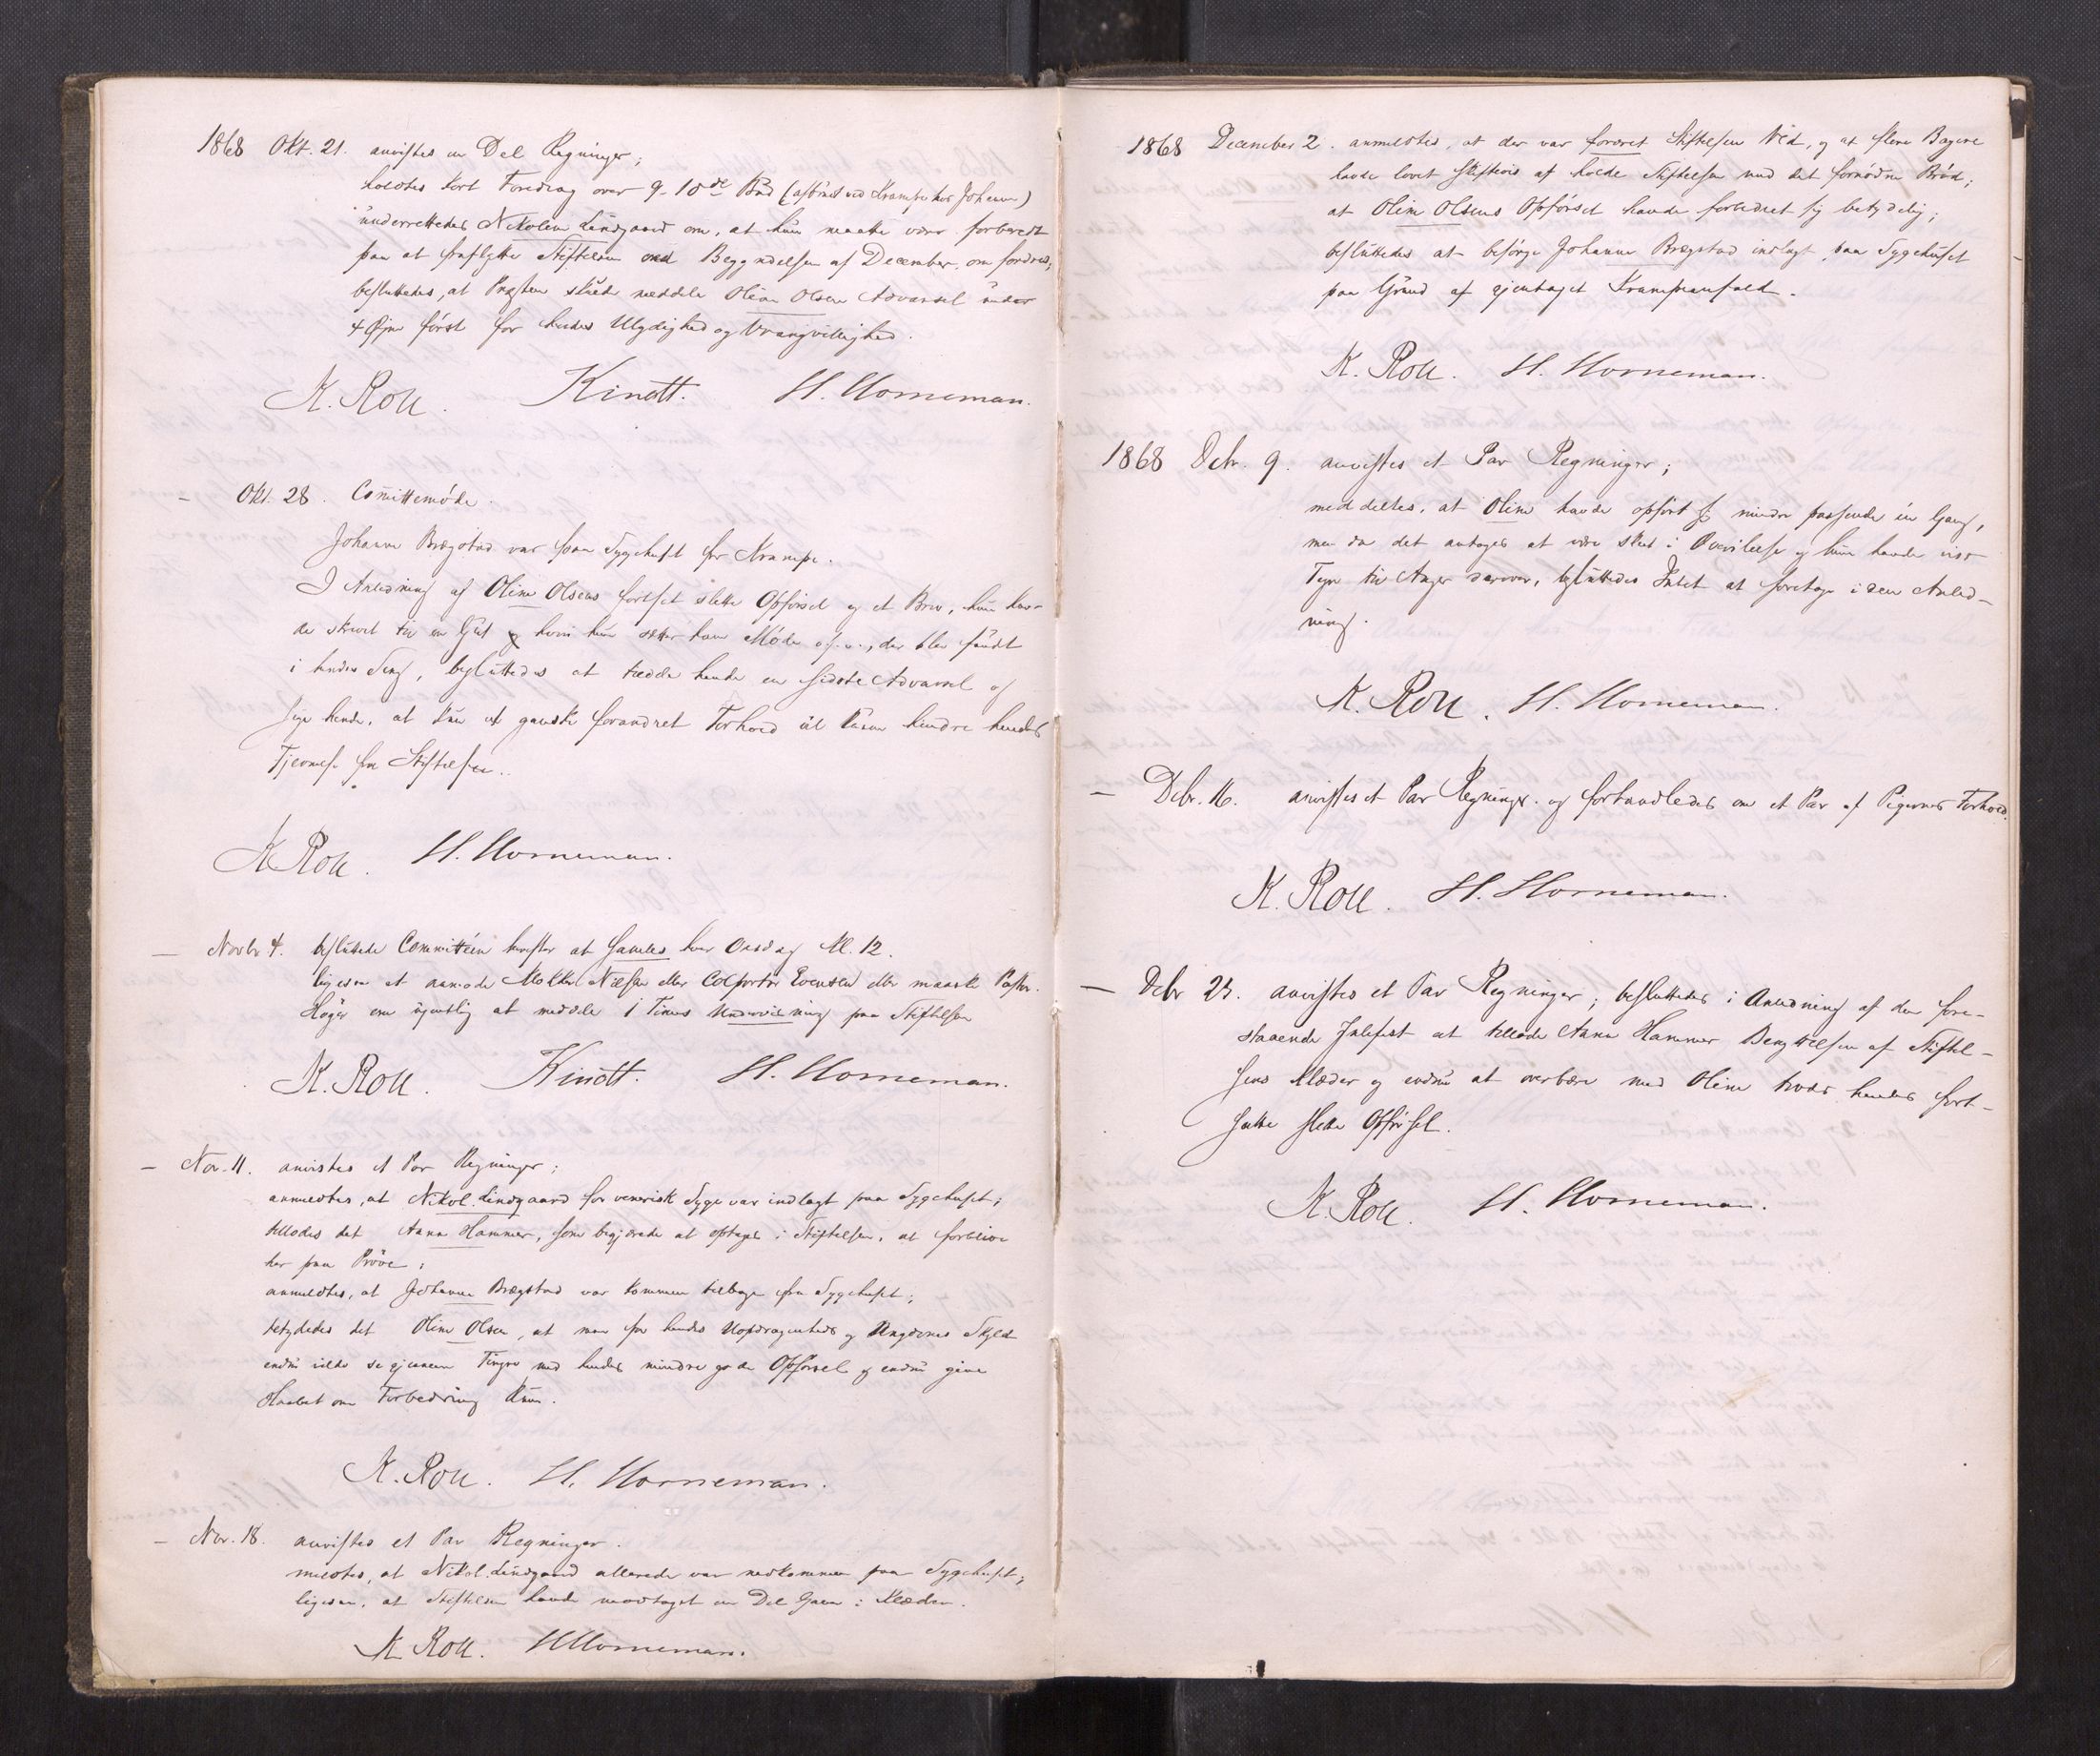 1868 Okt. 21. anvistes en Del Regninger;
holdtes kort Foredrag over 9-10de Bud (afbrudt ved Krampe hos Johanne)
underrettedes Nikoline Lindgaard om, at hun maatte være forberedt
paa at fraflytte Stiftelsen ved Begyndelsen af December, om fordres;
besluttedes, at Præsten skulde meddele Oline Olsen Advarsel under
4 Øjne først for hendes Ulydighed og Vrangvillighed.
K. Roll. Kindt. H. Horneman.
- Okt. 28. Committemøde.
Johanne Brægstad var paa Sygehuset for Krampe.
I Anledning af Oline Olsens fortsat slette Opførsel og et Brev, hun hav-
de skrevet til en Gut hvori hun sætter ham Møde o.s.v., der blev fundt
i hendes Seng, besluttedes at tildele hende en sidste Advarsel og
sige hende, at kun et ganske forandret Forhold vil kunne hindre hendes
Fjernelse fra Stiftelsen.
K. Roll. H. Horneman.
- Novbr 4. besluttede Committeen herefter at samles hver Onsdag Kl. 12.
ligesom at anmode Nielsen eller Colportør Evensen eller maaske Pastor
Høyer om ugentlig at meddele 1 Times Undervisning paa Stiftelsen
K. Roll. Kindt. H. Horneman.
- Nov. 11. anvistes et Par Regninger;
anmeldtes, at Nikol. Lindgaard for venerisk Syge var indlagt paa Sygehuset;
tillodes det Anna Hammer, som begjærede at optages i Stiftelsen, at forblive
her paa Prøve;
anmeldtes, at Johanne Brægstad var kommen tilbage fra Sygehuset;
betydedes det Oline Olsen, at man for hendes Uopdragenheds og Ungdoms Skyld
endnu vilde se gjennem Fingre med hendes mindre gode Opførsel og endnu give
Haabet om Forbedring Rum.
K. Roll. H. Horneman.
- Nov. 18. anvistes et Par Regninger.
meldtes, at Nikol. Lindgaard allerede var nedkommen paa Sygehuset;
ligesom, at Stiftelsen havde modtaget en Del Gaver i Klæder.
K Roll. H Horneman.
1868 December 2. anmeldtes, at der var foræret Stiftelsen Ved, og at flere Bagere
havde lovet skiftevis at holde Stiftelsen med det fornødne Brød;
at Oline Olsens Opførsel havde forbedret sig betydelig;
besluttedes at besørge Johanne Brægstad indlagt paa Sygehuset
paa Grund af gjentaget Krampeanfald.
K. Roll. H. Horneman.
1868 Debr. 9. anvistes et Par Regninger;
meddeltes, at Oline havde opført sig mindre passende én Gang,
men da det antoges at være skeet i Overilelse og hun havde vist
Tegn til Anger derover, besluttedes Intet at foretage i den Anled-
ning.
K. Roll. H. Horneman.
- Debr. 16. anvistes et Par Regninger og forhandledes om et Par af Pigernes Forhold.
K. Roll. H. Horneman.
- Debr 23. anvistes et Par Regninger; besluttedes i Anledning af den fore-
staaende Julefest at tillade Anna Hammer Benyttelsen af Stiftel-
sens Klæder og endnu at overbære med Oline trods hendes fort-
satte slette Opførsel.
K. Roll. H. Horneman.